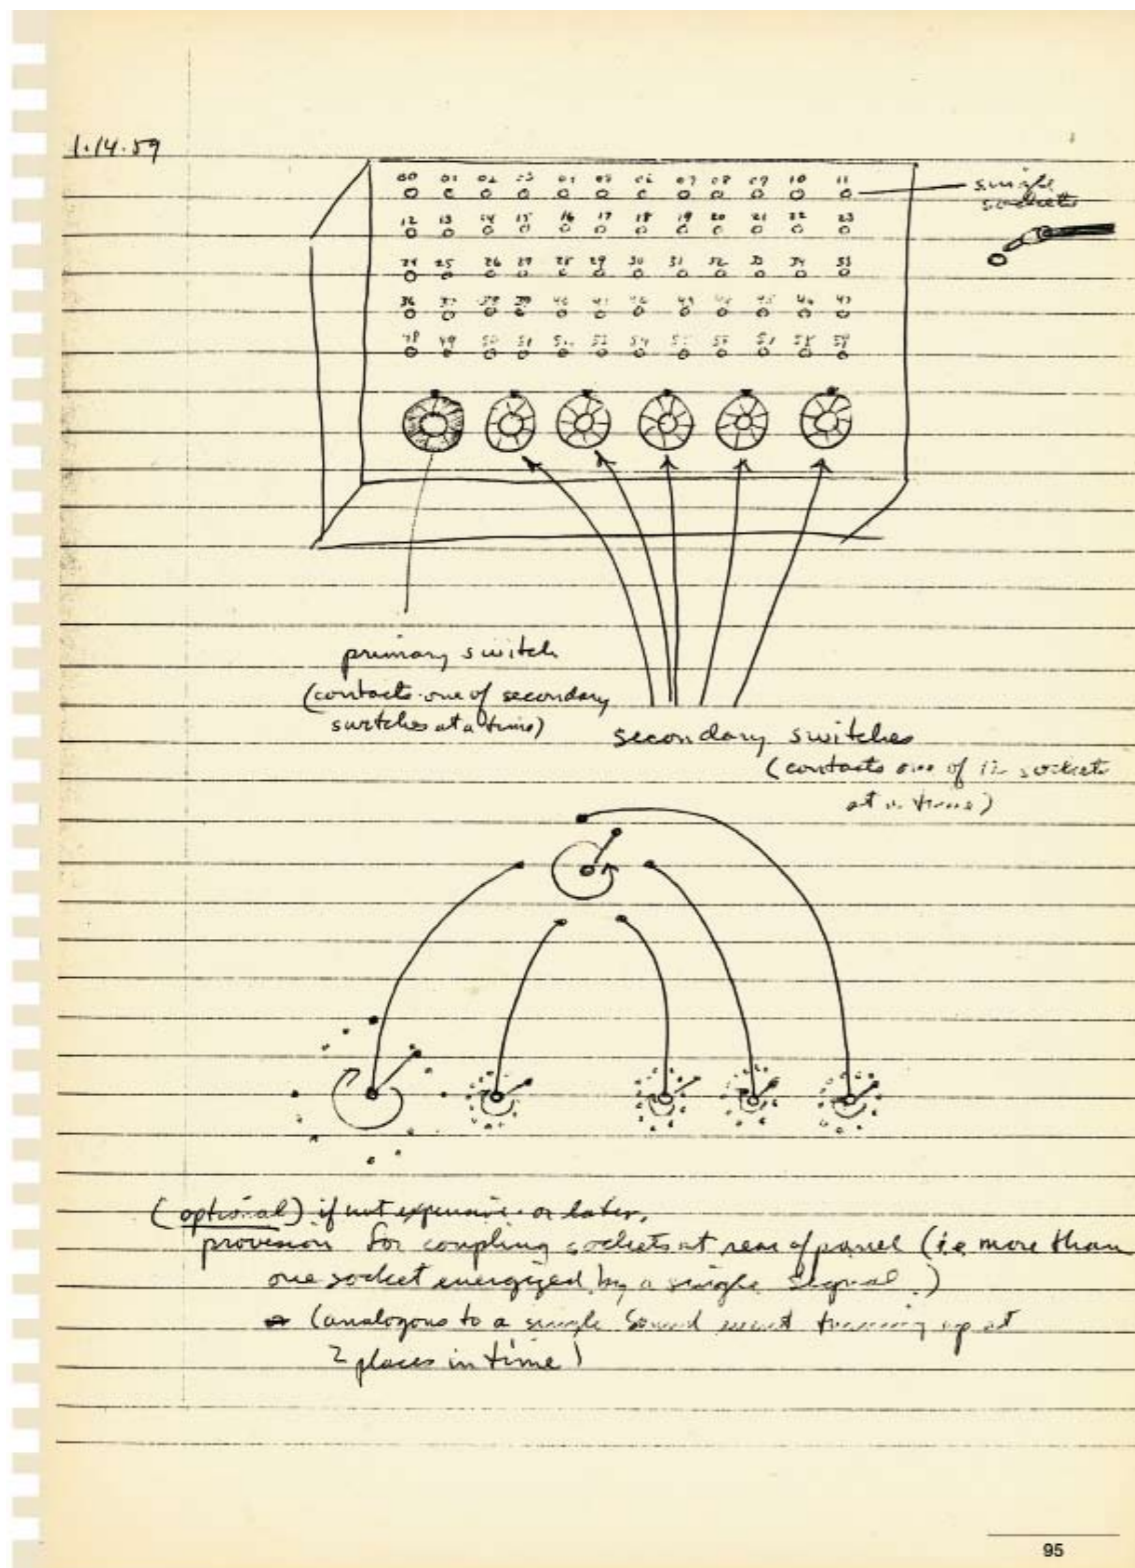 1.14.59
00 01 02 03 04 05 06 07 08 09 10 11
single
sockets
12 13 14 15 16 17 18 19 20 21 22 23
24 25 26 27 28 29 30 31 32 33 34 35
36 37 38 39 40 41 42 43 44 45 46 47
48 49 50 51 52 53 54 55 56 57 58 59
primary switch
(contacts one of secondary
switches at a time)
secondary switches
(contacts one of 12 sockets
at a time)
(optional) if not expensive or later,
provision for coupling sockets at rear of panel (i.e more than
one socket energized by a single signal.)
(analogous to a single sound event turning up at
2 places in time)
95